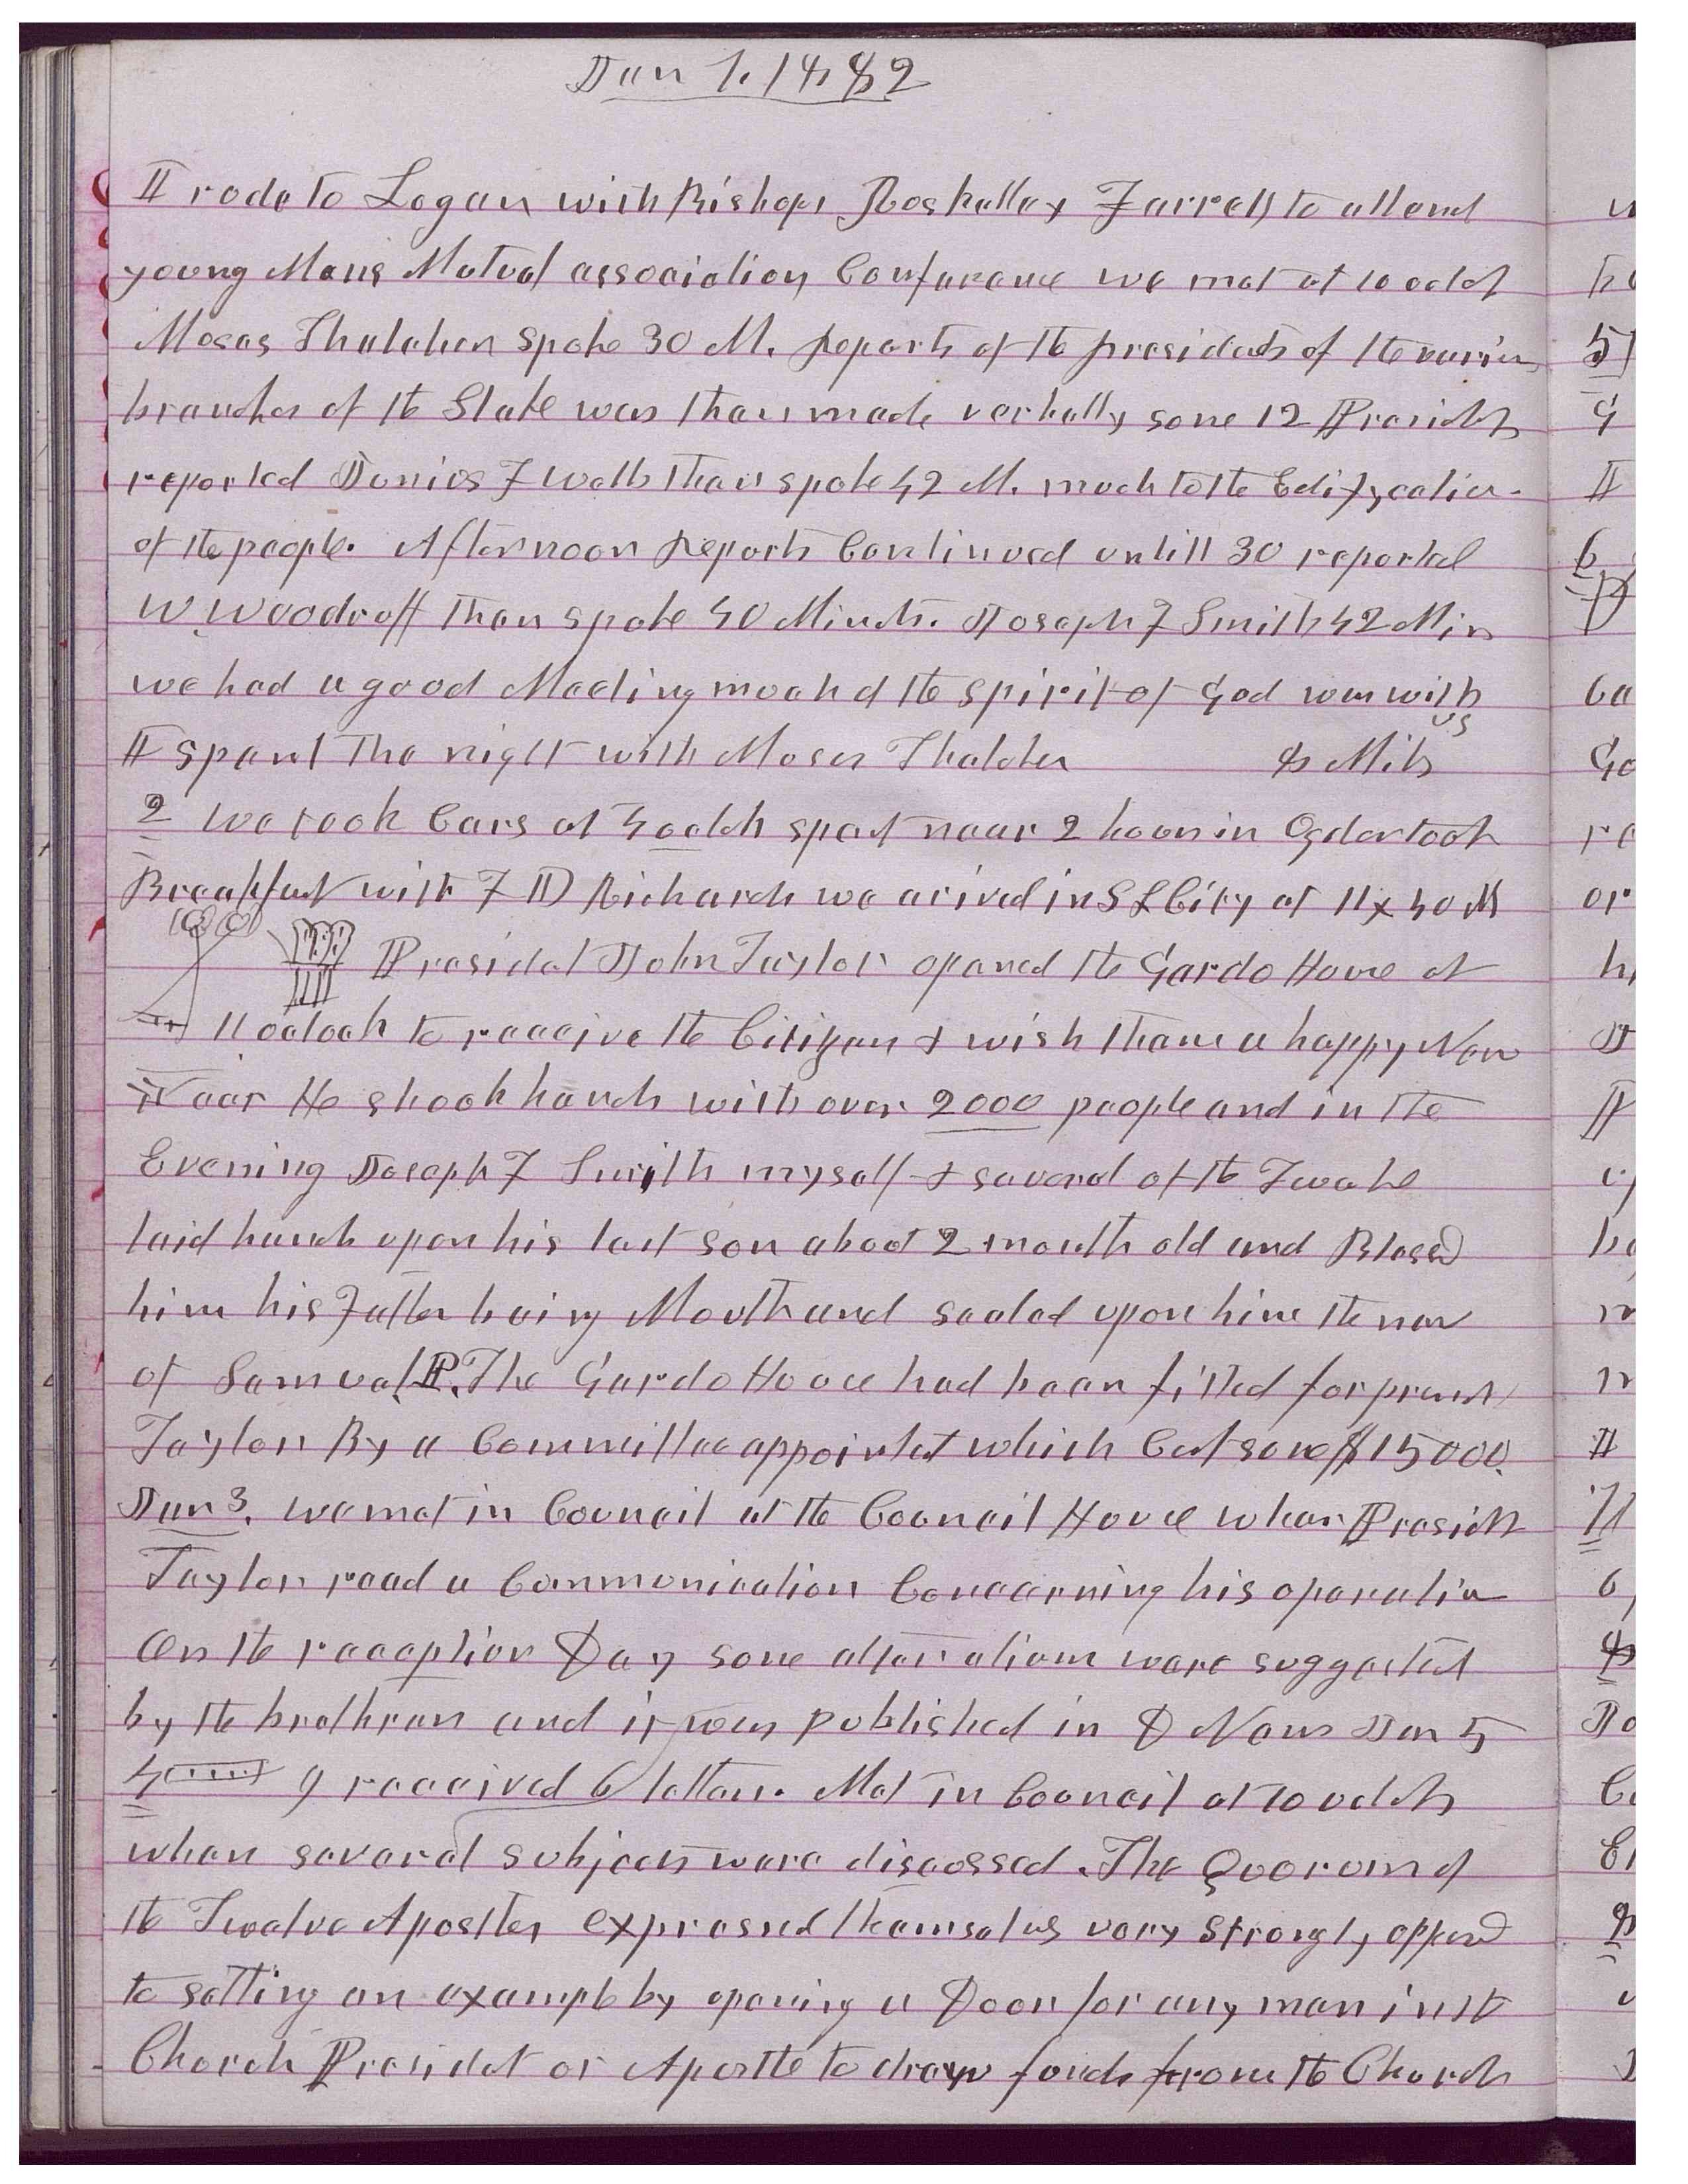 Jan 1. 1882
I rode to Logan with Bishops Roskelley Farrell to attend
young Mens Mutual association Conference we met at 10 oclok
Moses Thatcher spoke 30 M. Reports of the presidents of the various
branches of the Stake was then made verbally some 12 Presidets
reported Junius F Wells then spoke 42 M. much to the Edifycation
of the people. Afternoon Reports Continued untill 30 reported
W. Woodruff then spoke 40 Minuts. Joseph F Smith 42 Min
we had a good Meeting much of the spirit of God was with
us
I spent the night with Moses Thatcher 8 Mils
2 we took Cars at 4 oclok spent near 2 hours in Ogden took
Breakfast with F D Richards we arived in S L City at 11 x 40 M
Presidet John Taylor opened the Gardo House at
11 ocloch to receive the Citizens & wish them a happy New
Year He shook hands with over 2000 people and in the
Evening Joseph F Smith myself & several of the Twelve
laid hands upon his last son about 2 month old and Blessed
him his Father being Mouth and sealed upon him the name
of Samuel P. The Gardo House had been fitted for presidet
Taylor By a Committee appointed which Cost some $15000.
Jan 3. we met in Council at the Council House when Presidet
Taylor read a Communication Concerning his operation
On the reception Day some alterations were suggested
by the brethren and it was published in D News Jan 5
4 I received 6 letters. Met in Council at 10 oclok
when several subjects were discussed. The Quorum of
the Twelve Apostles expressed themselves very strongly opposed
to setting an example by opening a Door for any man in the
Church Presidet or Apostle to draw funds from the Church